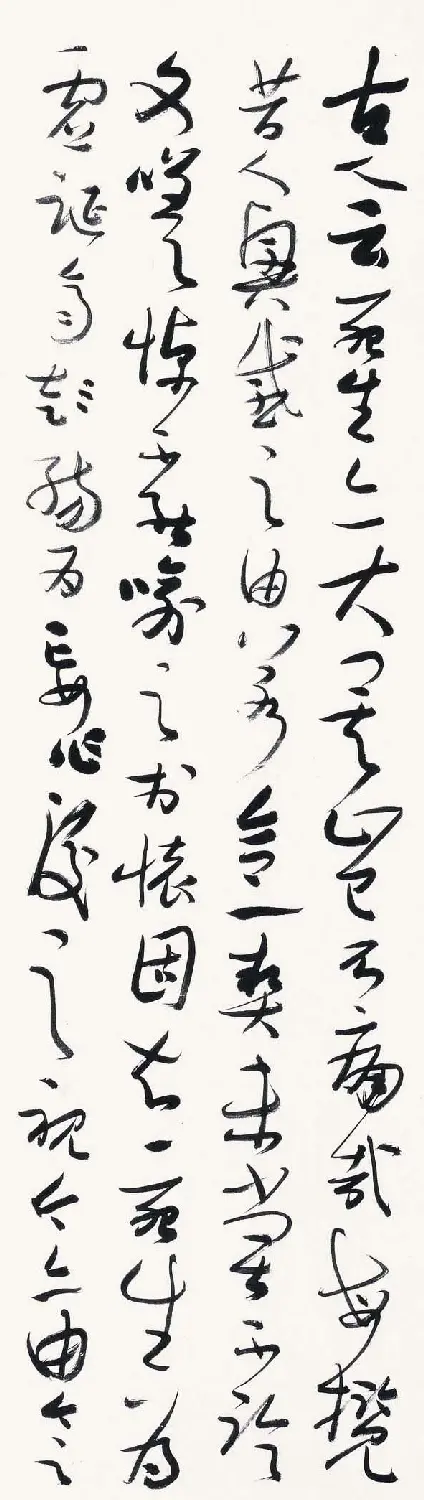 古人云死生亦大矣豈不痛哉每攬
昔人興感之由若合一契未嘗不臨
文嗟悼不能喻之於懷固知一死生為
虛誕齊彭殤為妄作後之視今亦由今之